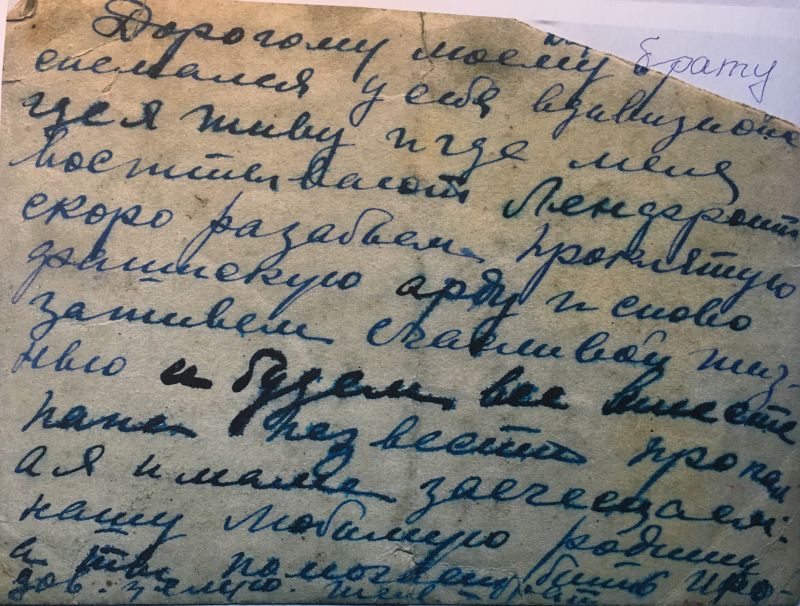 Дорогому моему брату
снемался у себя в дивизионе
где я живу и где меня
воспитывают Ленфронт
скоро разабьем проклятую
фашискую арду и сново
заживем счасливой жиз-
нью и будем все вместе
папа без вести пропал
а я и мама защещаем
нашу любимую родину
а ты помогаеш бить гро-
дов. целую. твой брат